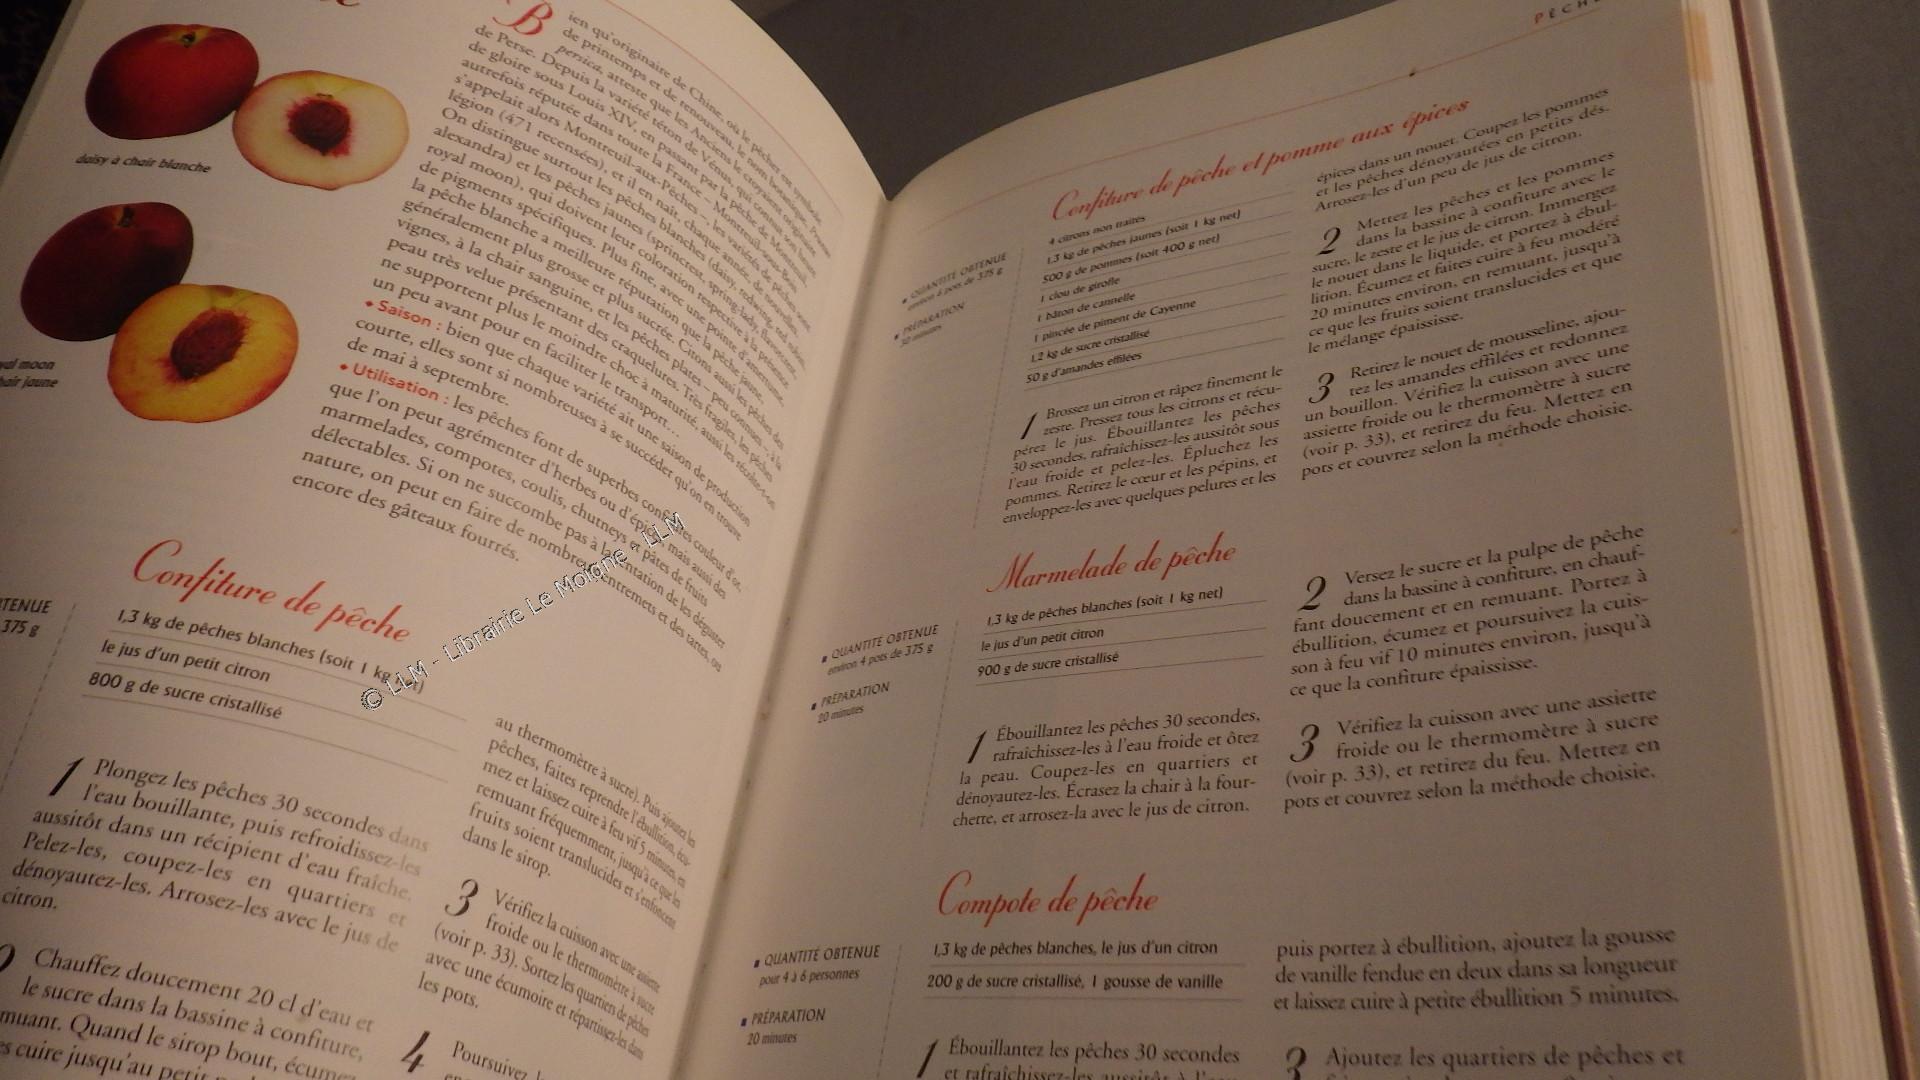 daisy à chair blanche
royal moon
chair jaune
Bien qu'originaire de Chine, où le pêcher est symbole
de printemps et de renouveau, le nom botanique, Prunus
persica, atteste que les Anciens le croyaient originaire
de Perse. Depuis la variété téton de Vénus, qui connut son heure
de gloire sous Louis XIV, en passant par la pêche de Montreuil,
autrefois réputée dans toute la France – Montreuil-sous-Bois
s'appelait alors Montreuil-aux-Pêches –, les variétés de pêches sont
légion (471 recensées), et il en naît, chaque année, de nouvelles.
On distingue surtout les pêches blanches (daisy, redwing,
alexandra) et les pêches jaunes (springcrest, spring-lady, flavorcrest,
royal moon), qui doivent leur coloration respective à la présence
de pigments spécifiques. Plus fine, avec une pointe d'amertume,
la pêche blanche a meilleure réputation que la pêche jaune,
généralement plus grosse et plus sucrée. Citons aussi les pêches de
vignes, à la chair sanguine, et les pêches plates – peu connues –, à la
peau très velue présentant des craquelures. Très fragiles, les pêches
ne supportent plus le moindre choc à maturité, aussi les récolte-t-on
un peu avant pour en faciliter le transport...
• Saison : bien que chaque variété ait une saison de production
courte, elles sont si nombreuses à se succéder qu'on en trouve
de mai à septembre.
• Utilisation : les pêches font de superbes confitures couleur d'or,
que l'on peut agrémenter d'herbes ou d'épices, mais aussi des
marmelades, compotes, coulis, chutneys et pâtes de fruits
délectables. Si on ne succombe pas à la tentation de les déguster
nature, on peut en faire de nombreux entremets et des tartes, ou
encore des gâteaux fourrés.
Confiture de pêche
OBTENUE
375 g
1,3 kg de pêches blanches (soit 1 kg net)
le jus d'un petit citron
800 g de sucre cristallisé
1 Plongez les pêches 30 secondes dans
l'eau bouillante, puis refroidissez-les
aussitôt dans un récipient d'eau fraîche.
Pelez-les, coupez-les en quartiers et
dénoyautez-les. Arrosez-les avec le jus de
citron.
2 Chauffez doucement 20 cl d'eau et
le sucre dans la bassine à confiture,
remuant. Quand le sirop bout, écumez
cuire jusqu'au petit
au thermomètre à sucre). Puis ajoutez les
pêches, faites reprendre l'ébullition, écu-
mez et laissez cuire à feu vif 5 minutes, en
remuant fréquemment, jusqu'à ce que les
fruits soient translucides et s'enfoncent
dans le sirop.
3 Vérifiez la cuisson avec une assiette
froide ou le thermomètre à sucre
(voir p. 33). Sortez les quartiers de pêches
avec une écumoire et répartissez-les dans
les pots.
4 Poursuivez
© LLM - Librairie Le Moigne - LLM
PÊCHE
Confiture de pêche et pomme aux épices
QUANTITÉ OBTENUE
environ 6 pots de 375 g
PRÉPARATION
30 minutes
4 citrons non traités
1,3 kg de pêches jaunes (soit 1 kg net)
500 g de pommes (soit 400 g net)
1 clou de girofle
1 bâton de cannelle
1 pincée de piment de Cayenne
1,2 kg de sucre cristallisé
50 g d'amandes effilées
1 Brossez un citron et râpez finement le
zeste. Pressez tous les citrons et récu-
pérez le jus. Ébouillantez les pêches
30 secondes, rafraîchissez-les aussitôt sous
l'eau froide et pelez-les. Épluchez les
pommes. Retirez le cœur et les pépins, et
enveloppez-les avec quelques pelures et les
épices dans un nouet. Coupez les pommes
et les pêches dénoyautées en petits dés.
Arrosez-les d'un peu de jus de citron.
2 Mettez les pêches et les pommes
dans la bassine à confiture avec le
sucre, le zeste et le jus de citron. Immergez
le nouet dans le liquide, et portez à ébul-
lition. Écumez et faites cuire à feu modéré
20 minutes environ, en remuant, jusqu'à
ce que les fruits soient translucides et que
le mélange épaississe.
3 Retirez le nouet de mousseline, ajou-
tez les amandes effilées et redonnez
un bouillon. Vérifiez la cuisson avec une
assiette froide ou le thermomètre à sucre
(voir p. 33), et retirez du feu. Mettez en
pots et couvrez selon la méthode choisie.
Marmelade de pêche
QUANTITÉ OBTENUE
environ 4 pots de 375 g
PRÉPARATION
20 minutes
1,3 kg de pêches blanches (soit 1 kg net)
le jus d'un petit citron
900 g de sucre cristallisé
1 Ébouillantez les pêches 30 secondes,
rafraîchissez-les à l'eau froide et ôtez
la peau. Coupez-les en quartiers et
dénoyautez-les. Écrasez la chair à la four-
chette, et arrosez-la avec le jus de citron.
2 Versez le sucre et la pulpe de pêche
dans la bassine à confiture, en chauf-
fant doucement et en remuant. Portez à
ébullition, écumez et poursuivez la cuis-
son à feu vif 10 minutes environ, jusqu'à
ce que la confiture épaississe.
3 Vérifiez la cuisson avec une assiette
froide ou le thermomètre à sucre
(voir p. 33), et retirez du feu. Mettez en
pots et couvrez selon la méthode choisie.
Compote de pêche
QUANTITÉ OBTENUE
pour 4 à 6 personnes
PRÉPARATION
20 minutes
1,3 kg de pêches blanches, le jus d'un citron
200 g de sucre cristallisé, 1 gousse de vanille
1 Ébouillantez les pêches 30 secondes
et rafraîchissez-les aussitôt à l'eau
puis portez à ébullition, ajoutez la gousse
de vanille fendue en deux dans sa longueur
et laissez cuire à petite ébullition 5 minutes.
3 Ajoutez les quartiers de pêches et